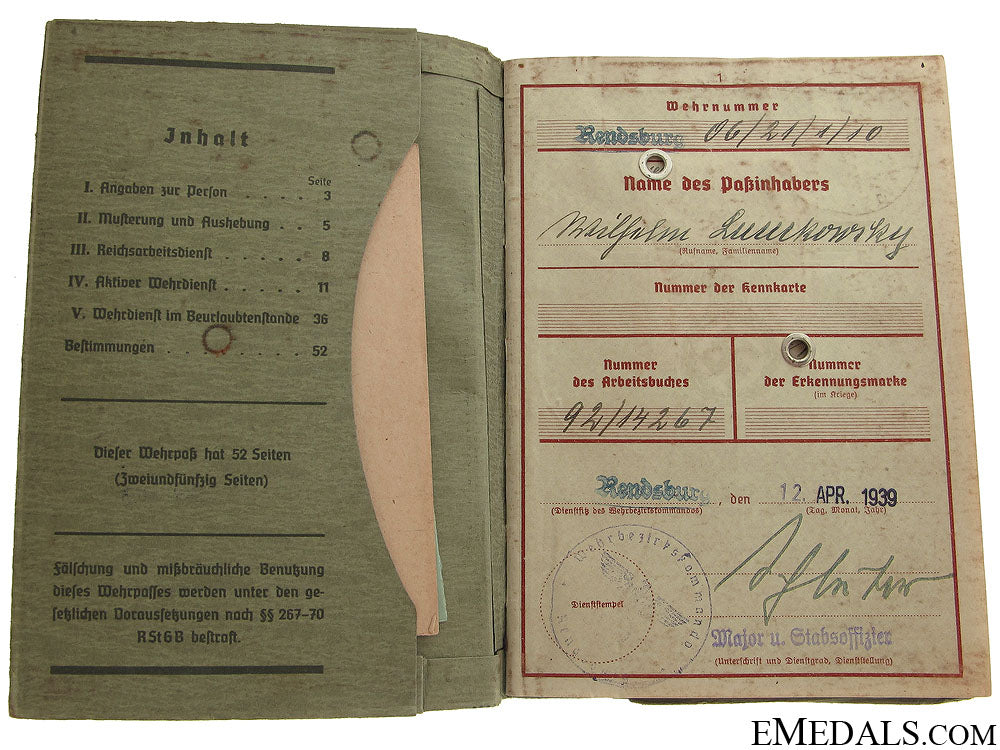 Inhalt
Seite
I. Angaben zur Person . . . . . . 3
II. Musterung und Aushebung . . 5
III. Reichsarbeitsdienst . . . . . . 8
IV. Aktiver Wehrdienst . . . . . . 11
V. Wehrdienst im Beurlaubtenstande 36
Bestimmungen . . . . . . . . 52
Dieser Wehrpaß hat 52 Seiten
(Zweiundfünfzig Seiten)
Fälschung und mißbräuchliche Benutzung
dieses Wehrpasses werden unter den ge-
setzlichen Voraussetzungen nach §§ 267-70
RStGB bestraft.
1
Wehrnummer
Rendsburg 06/21/1/10
Name des Paßinhabers
Wilhelm
(Rufname, Familienname)
Nummer der Kennkarte
Nummer
des Arbeitsbuches
92/14267
Nummer
der Erkennungsmarke
(im Kriege)
Rendsburg, den 12. APR. 1939
(Dienstsitz des Wehrbezirkskommandos) (Tag, Monat, Jahr)
Wehrbezirkskommando
Dienststempel
Schlüter
Major u. Stabsoffizier
(Unterschrift und Dienstgrad, Dienststellung)
EMEDALS.COM